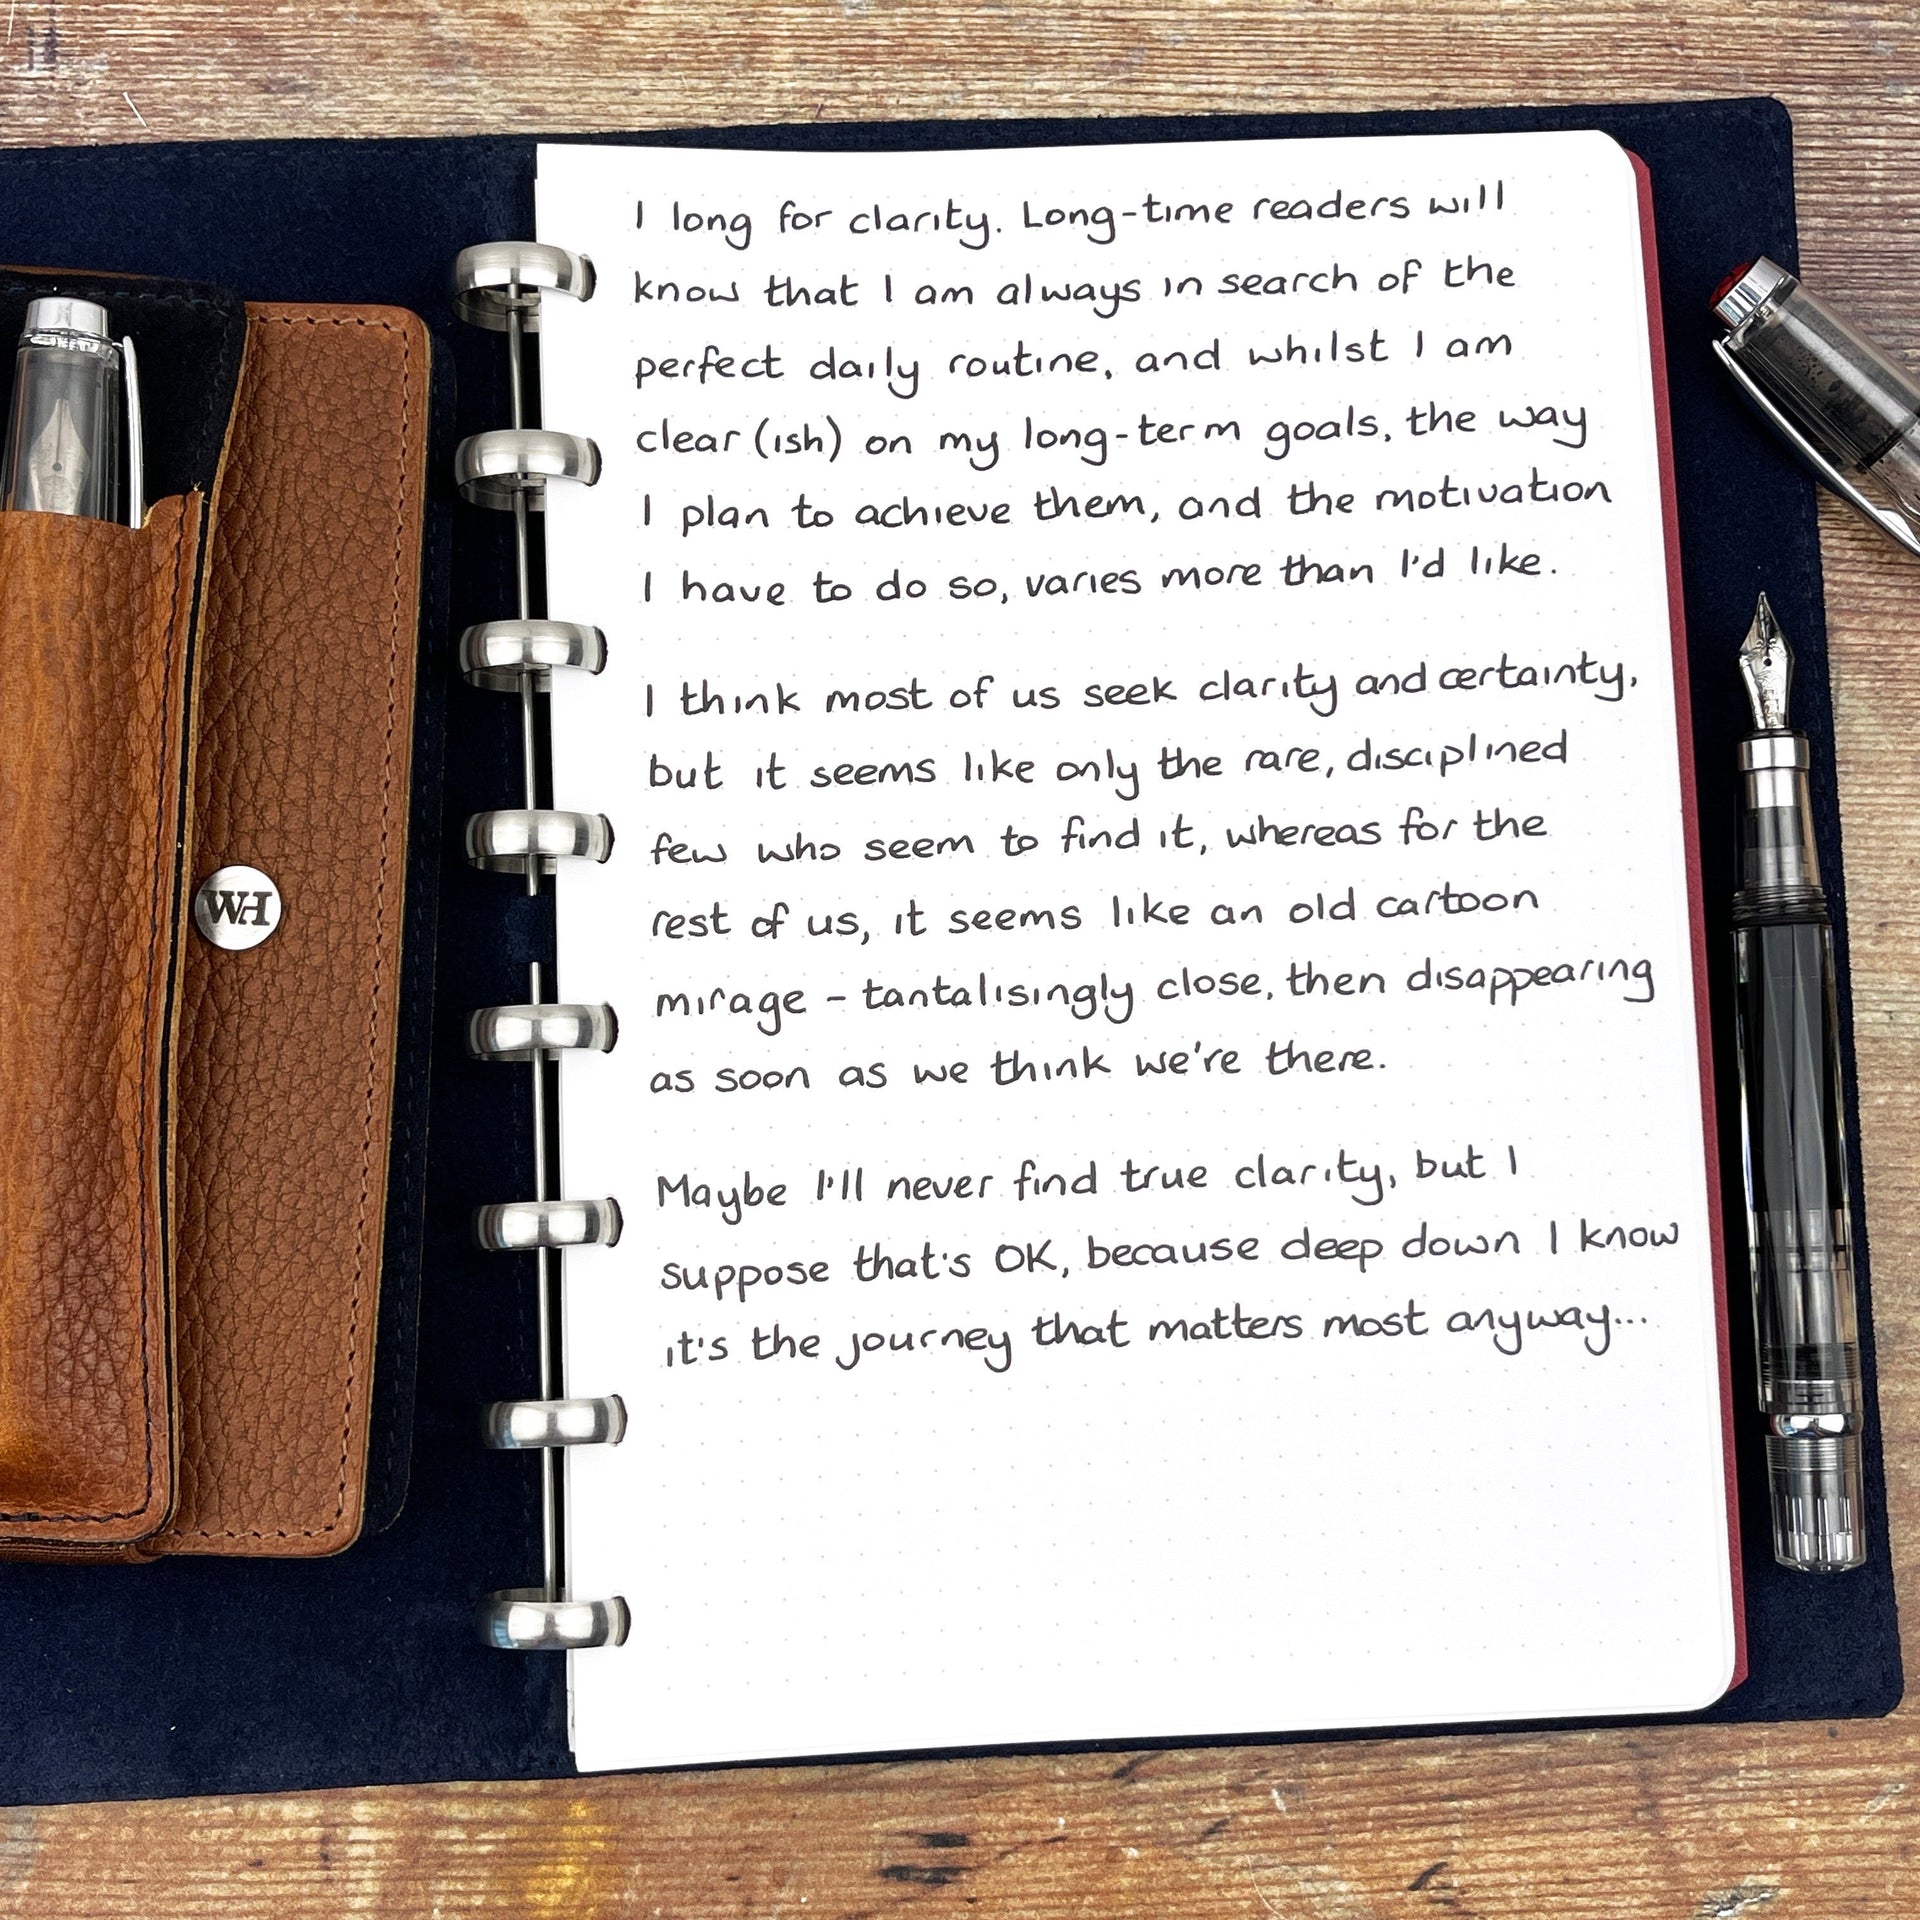 I long for clarity. Long-time readers will
know that I am always in search of the
perfect daily routine, and whilst I am
clear(ish) on my long-term goals, the way
I plan to achieve them, and the motivation
I have to do so, varies more than I'd like.
I think most of us seek clarity and certainty,
but it seems like only the rare, disciplined
few who seem to find it, whereas for the
rest of us, it seems like an old cartoon
mirage - tantalisingly close, then disappearing
as soon as we think we're there.
Maybe I'll never find true clarity, but I
suppose that's OK, because deep down I know
it's the journey that matters most anyway...
WH